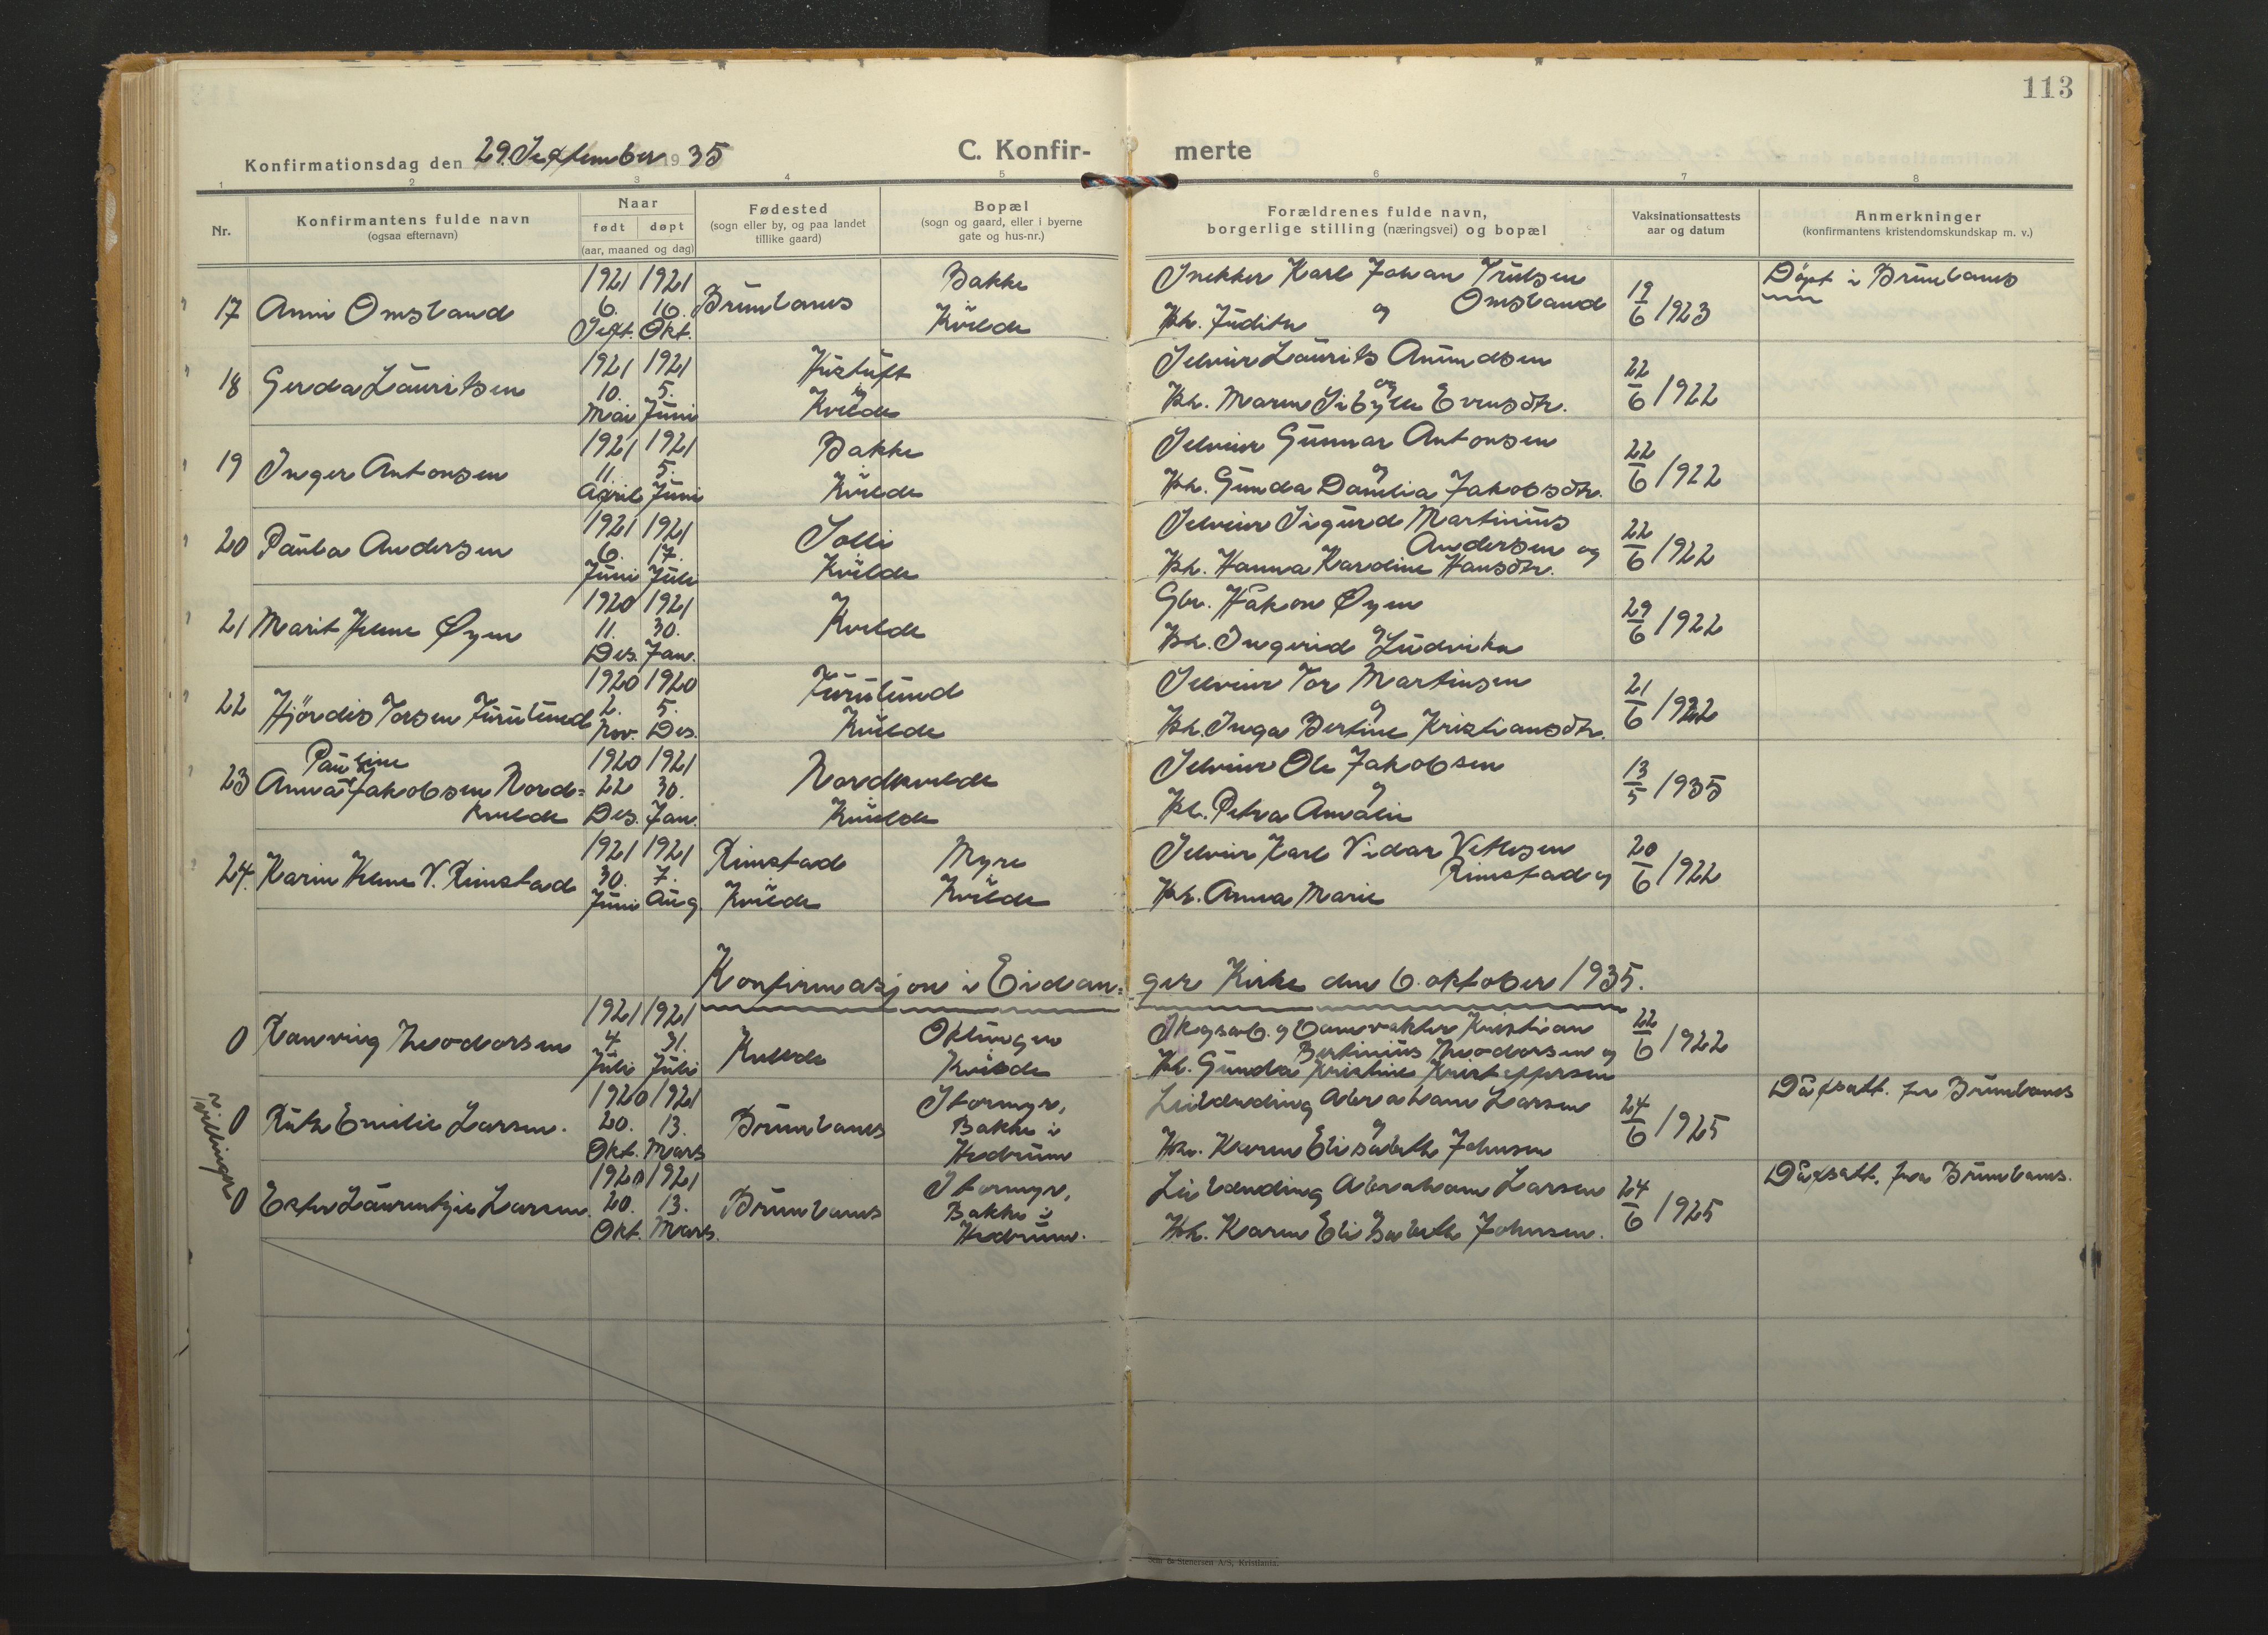 113
Konfirmationsdag den 29. September 1935
C. Konfir- merte
1 2 3 4 5 6 7 8
Nr.
Konfirmantens fulde navn
(ogsaa efternavn)
Naar
født døpt
(aar, maaned og dag)
Fødested
(sogn eller by, og paa landet
tillike gaard)
Bopæl
(sogn og gaard, eller i byerne
gate og hus-nr.)
Forældrenes fulde navn,
borgerlige stilling (næringsvei) og bopæl
Vaksinationsattests
aar og datum
Anmerkninger
(konfirmantens kristendomskundskap m. v.)
17 Anni Omsland
1921 1921
6. 16.
Sept. Okt.
Brunlanes
Bakke
i
Kvelde
Snekker Karl Johan Trulsen
Omsland
og
Hh. Judith
19/6 1923
Döpt i Brunlanes
18 Gerda Lauritsen
1921 1921
10. 5.
Mai Juni
Hustuft
i
Kvelde
Selveier Laurits Amundsen
og
Hh. Maren Sibylle Evensdtr.
22/6 1922
19 Inger Antonsen
1921 1921
11. 5.
April Juni
Bakke
i
Kvelde
Selveier Gunnar Antonsen
og
Hh. Gunda Danelia Jakobsdtr.
22/6 1922
20 Paula Andersen
1921 1921
6. 17.
Juni Juli
Solli
i
Kvelde
Selveier Sigurd Martinius
Andersen og
Hh. Hanna Karoline Hansdtr.
22/6 1922
21 Marit Helene Øyen
1920 1921
11. 30.
Des. Jan.
Kvelde
Gbr. Håkon Øyen
og
Hh. Ingerid Ludvika
29/6 1922
22 Hjördis Torsen Furulund
1920 1920
2. 5.
Nov. Des.
Furulund
i
Kvelde
Selveier Tor Martinsen
og
Hh. Inga Bertine Kristiansdtr.
21/6 1922
Pauline
23 Anna Jakobsen Nord=
kvelde
1920 1921
22 30.
Des. Jan.
Nordkvelde
i
Kvelde
Selveier Ole Jakobsen
og
Hh. Petra Amalie
13/5 1935
24. Karin Helene V. Rimstad
1921 1921
30. 7.
Juni Aug.
Rimstad
i
Kvelde
Myre
i
Kvelde
Selveier Karl Vidar Vettesen
Rimstad og
Hh. Anna Marie
20/6 1922
Konfirmasjon i Eidan= ger Kirke den 6. oktober 1935.
0 Ranveig Theodorsen
1921 1921
4. 31.
Juli Juli
Kvelde
Oklungen
i
Kvelde
Skogsarb. og Damvakter Kristian
Bertinius Theodorsen og
Hh. Gunda Kristine Kristoffersen
22/6 1922
2 tvillinger
0 Ruth Emilie Larsen.
1920 1921
20. 13.
Okt. Mars
Brunlanes
Stormyr,
Bakke i
Hedrum
Leilending Abraham Larsen
og
Hh. Karen Elisabeth Johnsen
24/6 1925
Dåpsatt. fra Brunlanes
0 Ester Laurentze Larsen.
1920 1921
20. 13.
Okt. Mars.
Brunlanes
Stormyr,
Bakke i
Hedrum.
Leilending Abraham Larsen
Hh. Karen Elisabeth Johnsen.
24/6 1925
Dåpsatt. fra Brunlanes.
Sem & Stenersen A/S, Kristiania.